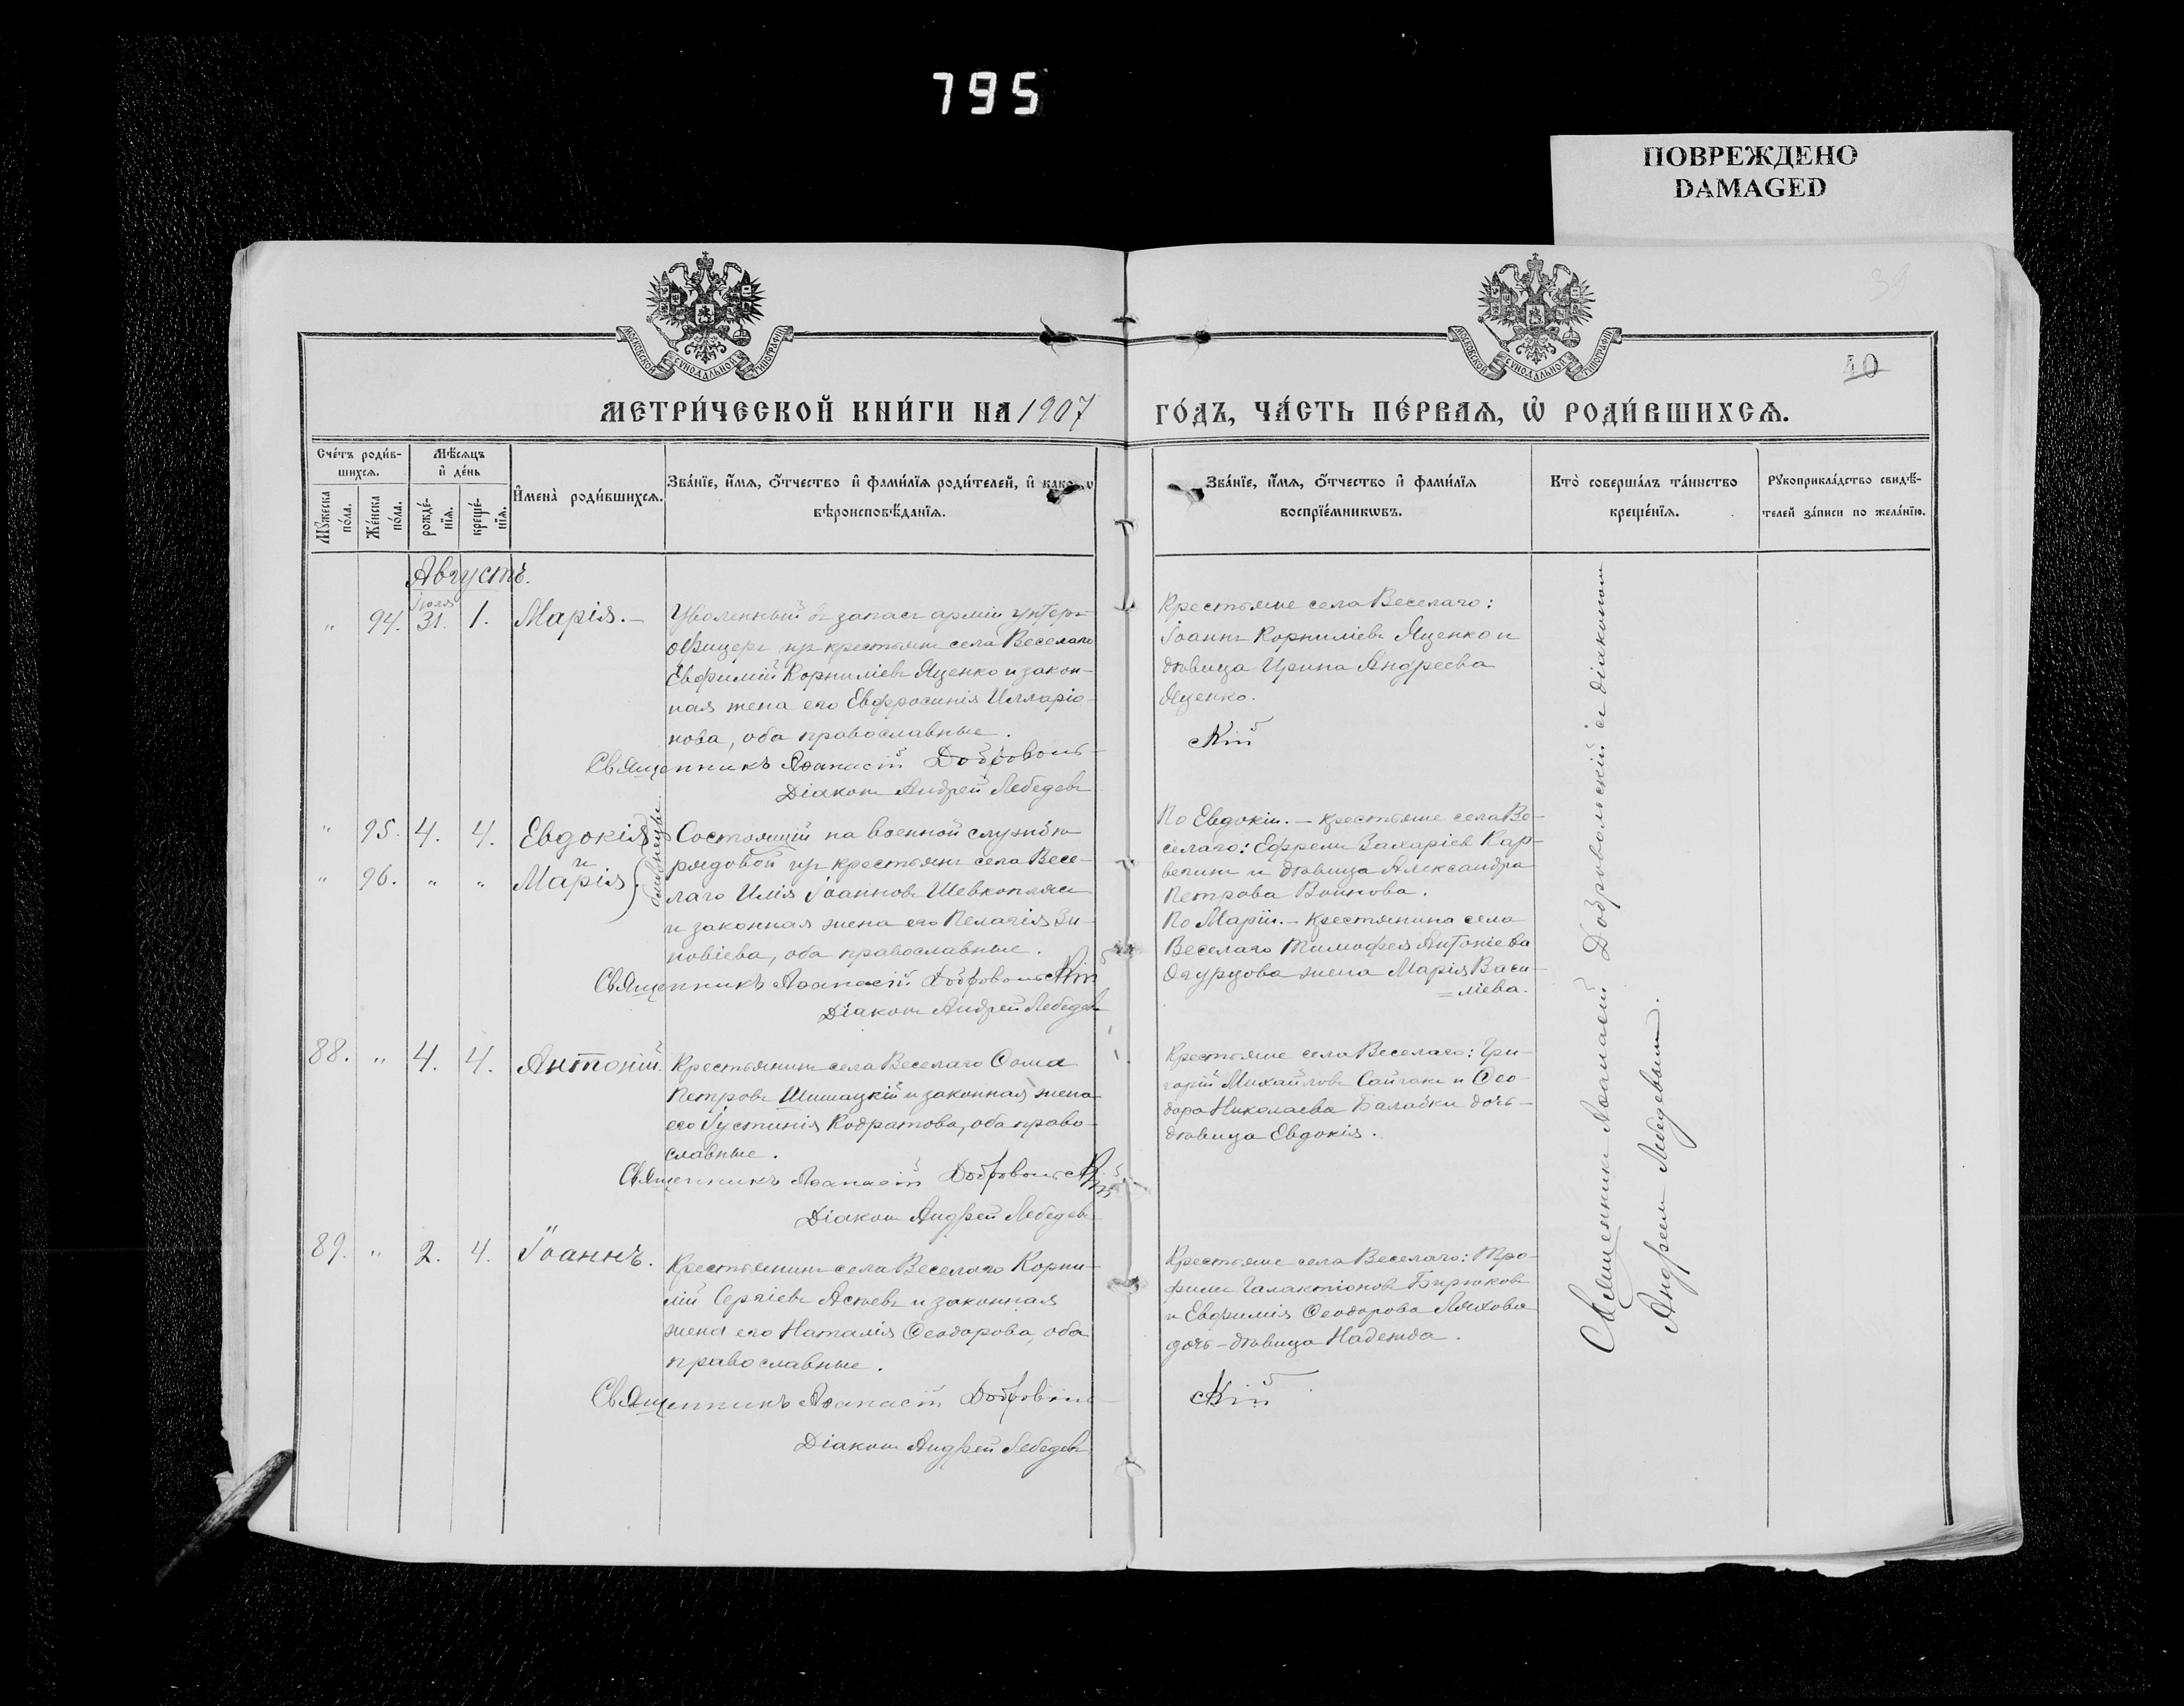 795
ПОВРЕЖДЕНО
DAMAGED
МОСКОВСКОЙ СѴНОДАЛЬНОЙ ТИПОГРАФІИ
МОСКОВСКОЙ СѴНОДАЛЬНОЙ ТИПОГРАФІИ
40
МЕТРИ́ЧЕСКОЙ КНИ́ГИ НА 1907 ГО́ДЪ, ЧА́СТЬ ПЕ́РВАѦ, Ѡ҆ РОДИ́ВШИХСѦ.
Сче́тъ роди́в-
шихсѧ.
Мѣ́сѧцъ
и҆ де́нь
Мꙋ́жеска
по́ла.
Же́нска
по́ла.
рожде́-
нїѧ.
креще́-
нїѧ.
И҆мена̀ роди́вшихсѧ.
Зва́нїе, и҆́мѧ, ѻ҆́тчество и҆ фами́лїѧ роди́телей, и҆ како́гѡ
вѣроисповѣ́данїѧ.
Зва́нїе, и҆́мѧ, ѻ҆́тчество и҆ фами́лїѧ
воспрїе́мникѡвъ.
Кто̀ соверша́лъ та́инство
креще́нїѧ.
Рꙋкоприкла́дство свидѣ́-
телей за́писи по жела́нїю.
Августъ.
" 94. Іюля 31. 1. Марія.
Уволенный въ запасъ арміи унтеръ-
офицеръ изъ крестьянъ села Веселаго
Евфимій Корниліевъ Яценко и закон-
ная жена его Евфросинія Илларіо-
нова, оба православные.
Священникъ Аѳанасій Добровольскій
Діаконъ Андрей Лебедевъ
Крестьяне села Веселаго:
Іоаннъ Корниліевъ Яценко и
дѣвица Ирина Андреева
Яценко.
" 95. 4. 4. Евдокія
и
" 96. " " Марія.
близнецы.
Состоящій на военной службѣ
рядовой изъ крестьянъ села Весе-
лаго Илія Іоанновъ Шевкопляс
и законная жена его Пелагія Зи-
новіева, оба православные.
Священникъ Аѳанасій Добровольскій
Діаконъ Андрей Лебедевъ
По Евдокіи. – Крестьяне села Ве-
селаго: Ефремъ Захаріев Кар-
и дѣвица Александра
Петрова Воинова.
По Маріи. – Крестьянина села
Веселаго Тимофея Антоніева
Огурцова жена Марія Васи-
=ліева.
88. " 4. 4. Антоній.
Крестьянинъ села Веселаго Ѳома
Петровъ Шишацкій и законная жена
его Іустинія Кодратова, оба право-
славные.
Священникъ Аѳанасій Добровольскій
Діаконъ Андрей Лебедевъ
Крестьяне села Веселаго: Гри-
горій Михайловъ Сайгакъ и Ѳео-
дора Николаева Балабки дочь-
дѣвица Евдокія.
89. " 2. 4. Іоаннъ.
Крестьянинъ села Веселаго Корни-
лій Сергіевъ и законная
жена его Наталія Ѳеодорова, оба
православные.
Священникъ Аѳанасій Добровольскій
Діаконъ Андрей Лебедевъ
Крестьяне села Веселаго: Тро-
фимъ Галактіоновъ Бирюковъ
и Евфимія Ѳеодорова Ляхова
дочь-дѣвица Надежда.
Священникъ Аѳанасій Добровольскій и діакономъ
Андреемъ Лебедевымъ.